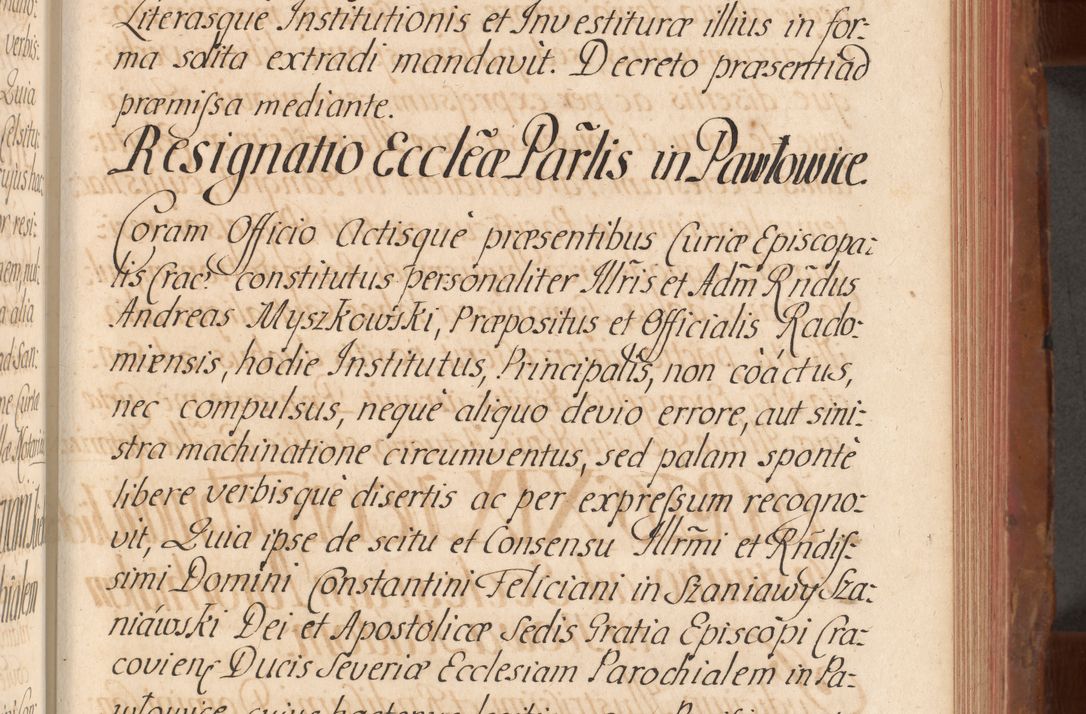 Literasque Institutionis et Investituræ illius in for:
ma solita extradi mandavit. Decreto præsenti ad
præmiſsa mediante.
Resignatio Ecclẽæ Par̃lis in Pawłowice.
Coram Officio Actisquè præsentibus Curiæ Episcopa:
lis Crac: constitutus personaliter Illr̃is et Adm̃ Rñdus
Andreas Myszkowski, Præpositus et Officialis Rado:
miensis, hodie Institutus, Principalis, non còáctus,
nec compulsus, nequè aliquo devio errore, aut sini:
stra machinatione circumventus, sed palam spontè
libere verbisquè disertis ac per expreſsum recogno:
vit, Quia ipse de scitu et Consensu Illr̃mi et Rñdiſ:
simi Domini Constantini Feliciani in Szaniawy Sza:
niáwski Dei et Apostolicæ Sedis Gratia Episcopi Cra:
covien Ducis Severiæ Ecclesiam Parochialem in Pa:
włowice
verbis:
Quia
alia